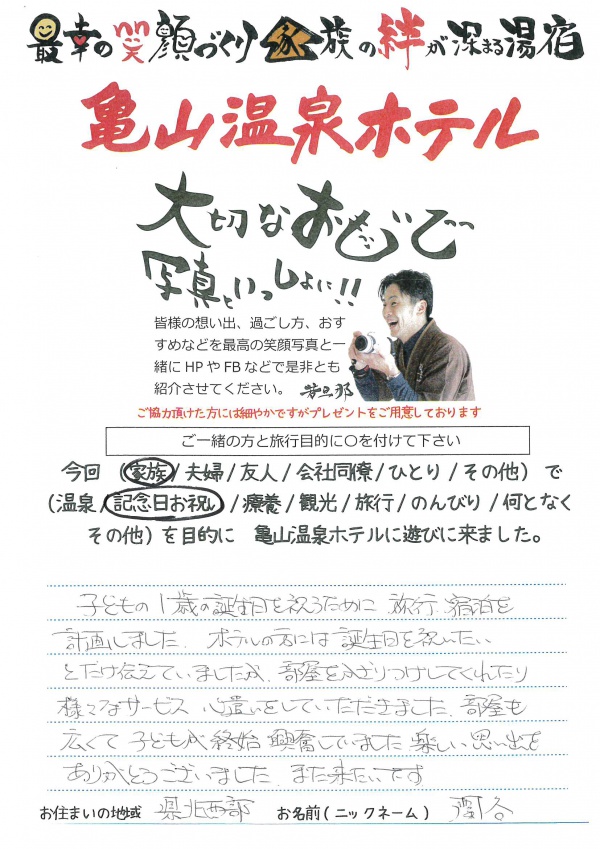 最幸の笑顔づくり家族の絆が深まる湯宿
亀山温泉ホテル
大切なおもいで
写真といっしょに!!
皆様の想い出、過ごし方、おす
すめなどを最高の笑顔写真と一
緒にHPやFBなどで是非とも
紹介させてください。 若旦那
ご協力頂けた方には細やかですがプレゼントをご用意しております
ご一緒の方と旅行目的に〇を付けて下さい
今回 (家族/夫婦/友人/会社同僚/ひとり/その他) で
(温泉/記念日お祝い/療養/観光/旅行/のんびり/何となく
その他) を目的に 亀山温泉ホテルに遊びに来ました。
子どもの1歳の誕生日を祝うために 旅行、宿泊を
計画しました。ホテルの方には 誕生日を祝いたい
とだけ伝えていましたが、部屋をかざりつけしてくれたり
様々なサービス 心遣いをしていただきました。部屋も
広くて 子どもが 終始 興奮していました 楽しい思い出を
ありがとうございました。また来たいです
お住まいの地域 県北西部 お名前(ニックネーム)